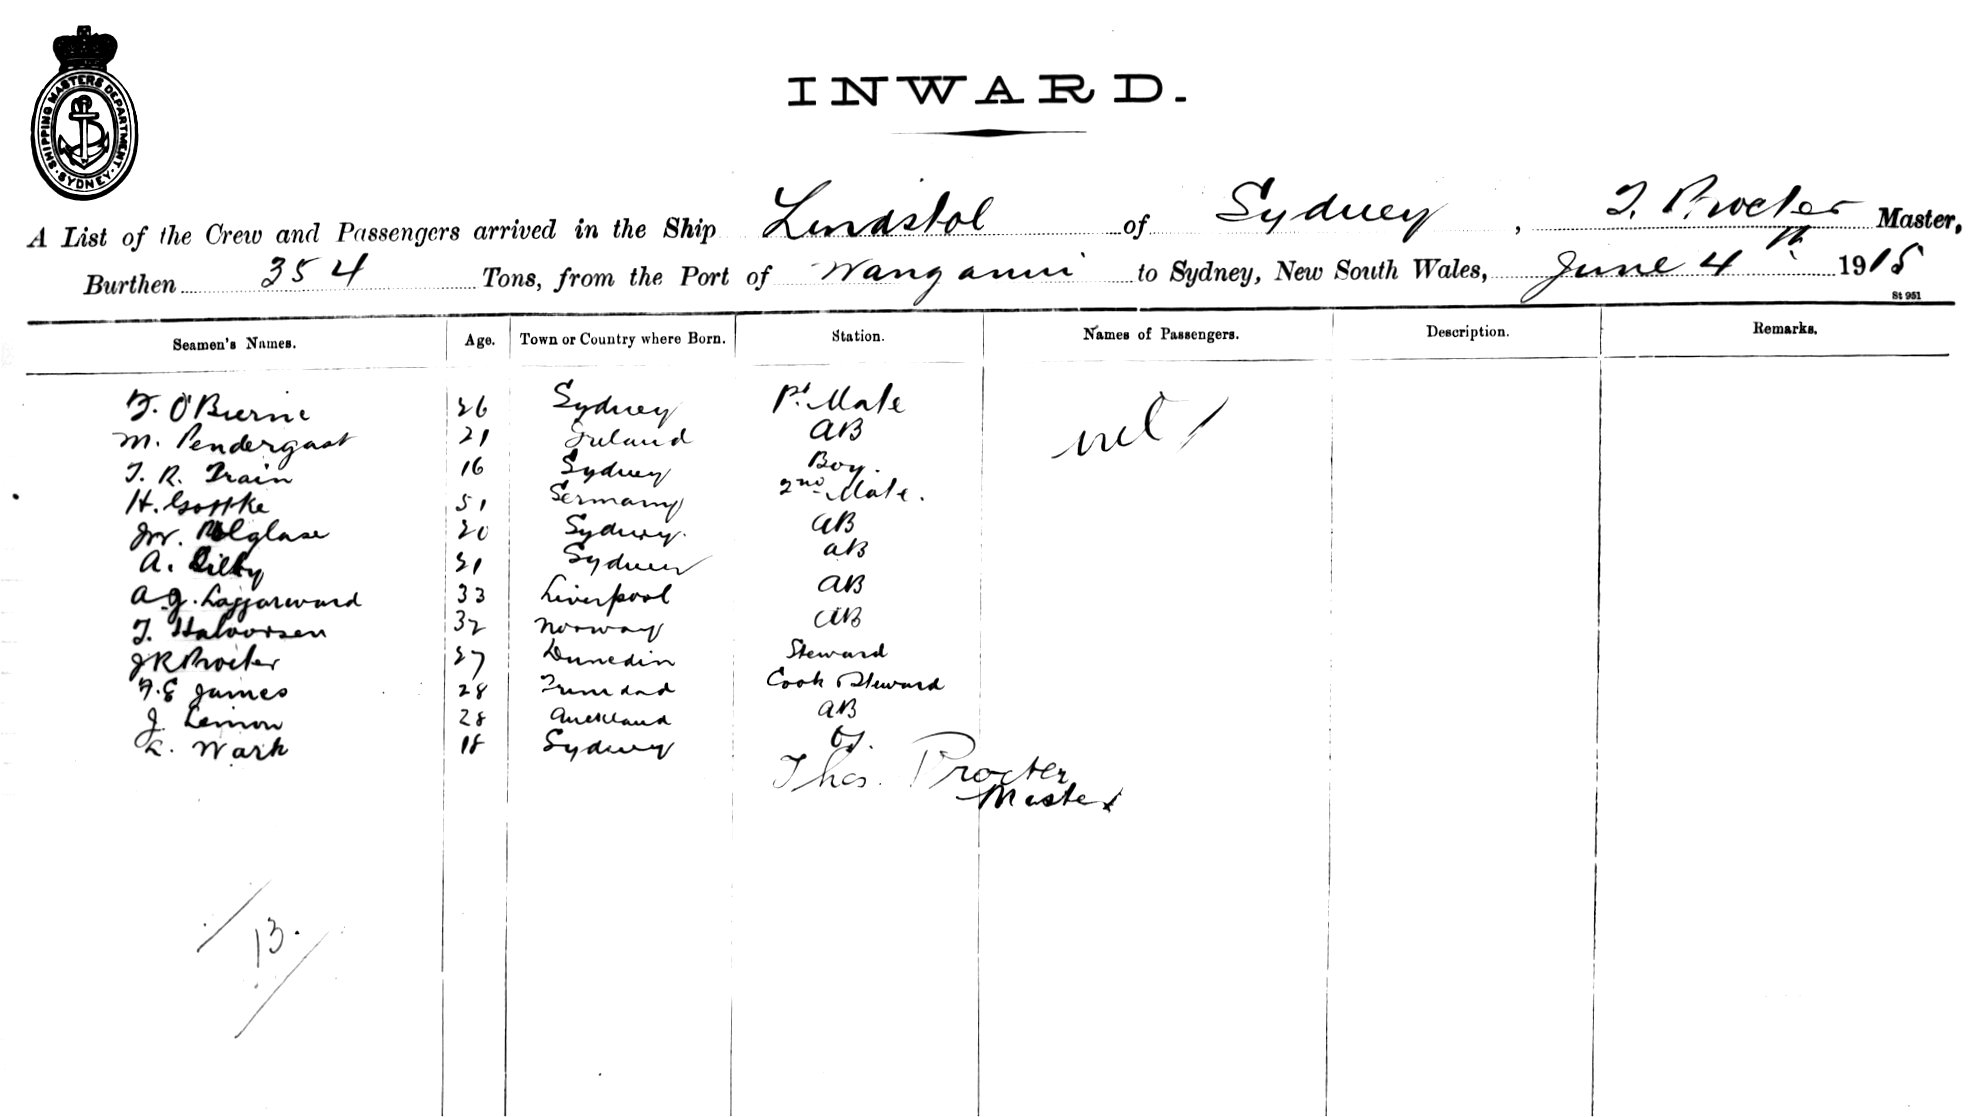 SHIPPING MASTERS DEPARTMENT
SYDNEY
INWARD.
A List of the Crew and Passengers arrived in the Ship Lindstol of Sydney, T. Procter Master,
Burthen 354 Tons, from the Port of Wanganui to Sydney, New South Wales, June 4th 1915
St 951
Seamen's Names. Age. Town or Country where Born. Station. Names of Passengers. Description. Remarks.
O'Bierne 26 Sydney 1st Mate nil
M. Pendergast 21 Ireland AB
T. R. Train 16 Sydney Boy.
H. 51 Germany 2nd Mate.
Polglase 20 Sydney. AB
A. 21 Sydney AB
A. J. 33 Liverpool AB
T. Halvorsen 32 Norway AB
J R Procter 27 Dunedin Steward
F. E James 28 Trinidad Cook Steward
J. Lemon 28 Auckland AB
Wark 18 Sydney OS.
Thos. Procter
Master
13.